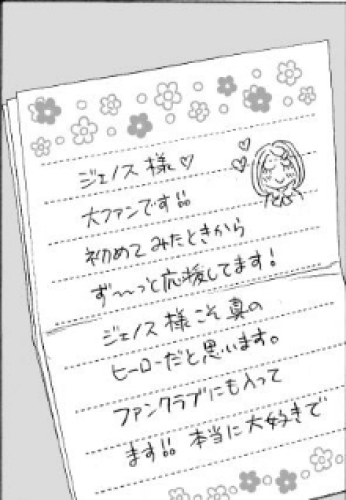 ジェノス様♡
大ファンです!!
初めてみたときから
ず〜〜っと応援してます!
ジェノス様こそ真の
ヒーローだと思います。
ファンクラブにも入って
ます!! 本当に大好きで